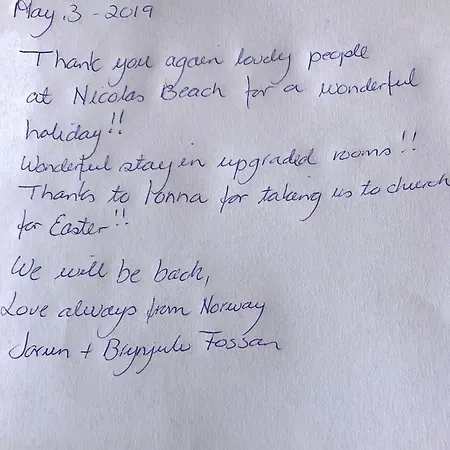 May, 3 - 2019
Thank you again lovely people
at Nicolas Beach for a wonderful
holiday!!
Wonderful stay in upgraded rooms!!
Thanks to Ionna for taking us to church
for Easter!!
We will be back,
Love always from Norway
Jorun + Brynjulv Fossan